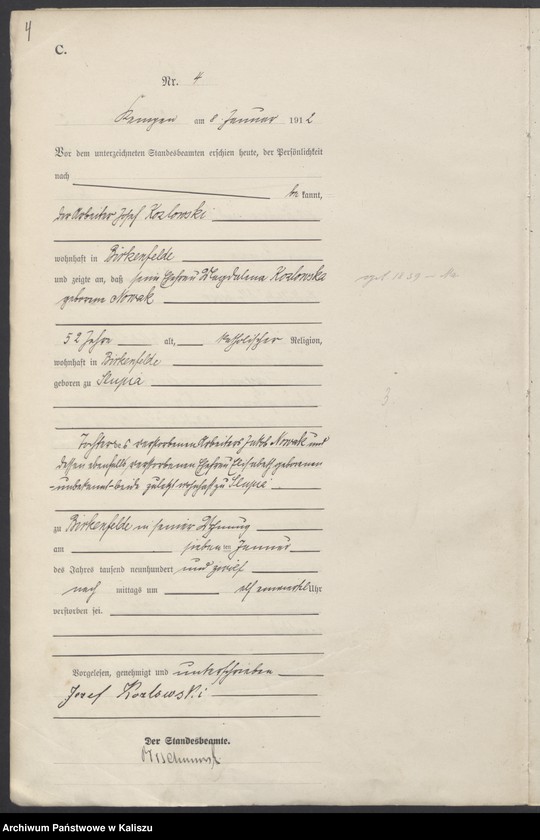 4
C.
Nr. 4
Kempen am 8. Januar 1912
Vor dem unterzeichneten Standesbeamten erschien heute, der Persönlichkeit
nach
be kannt,
der Arbeiter Josef Kozlowski
wohnhaft in Birkenfelde
und zeigte an, daß seine Ehefrau Magdalena Kozlowska
geborene Nowak
52 Jahre alt, katholischer Religion,
wohnhaft in Birkenfelde
geboren zu Slupia
Tochter des verstorbenen Arbeiters Jakob Nowak und
dessen ebenfalls verstorbenen Ehefrau Elisabeth geborenen
-unbekannt- beide zuletzt wohnhaft zu Slupia
zu Birkenfelde in seiner Wohnung
am sieben ten Januar
des Jahres tausend neunhundert und zwölf
nach mittags um elf einviertel Uhr
verstorben sei.
Vorgelesen, genehmigt und unterschrieben
Josef Kozlowski
Der Standesbeamte.
Archiwum Państwowe w Kaliszu